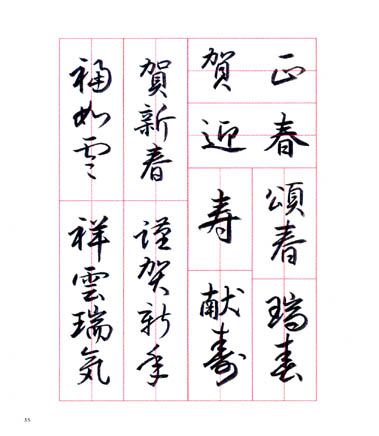 賀正
迎春
頌春
瑞春
寿
献寿
賀新春
謹賀新年
福如雲
祥雲瑞気
35